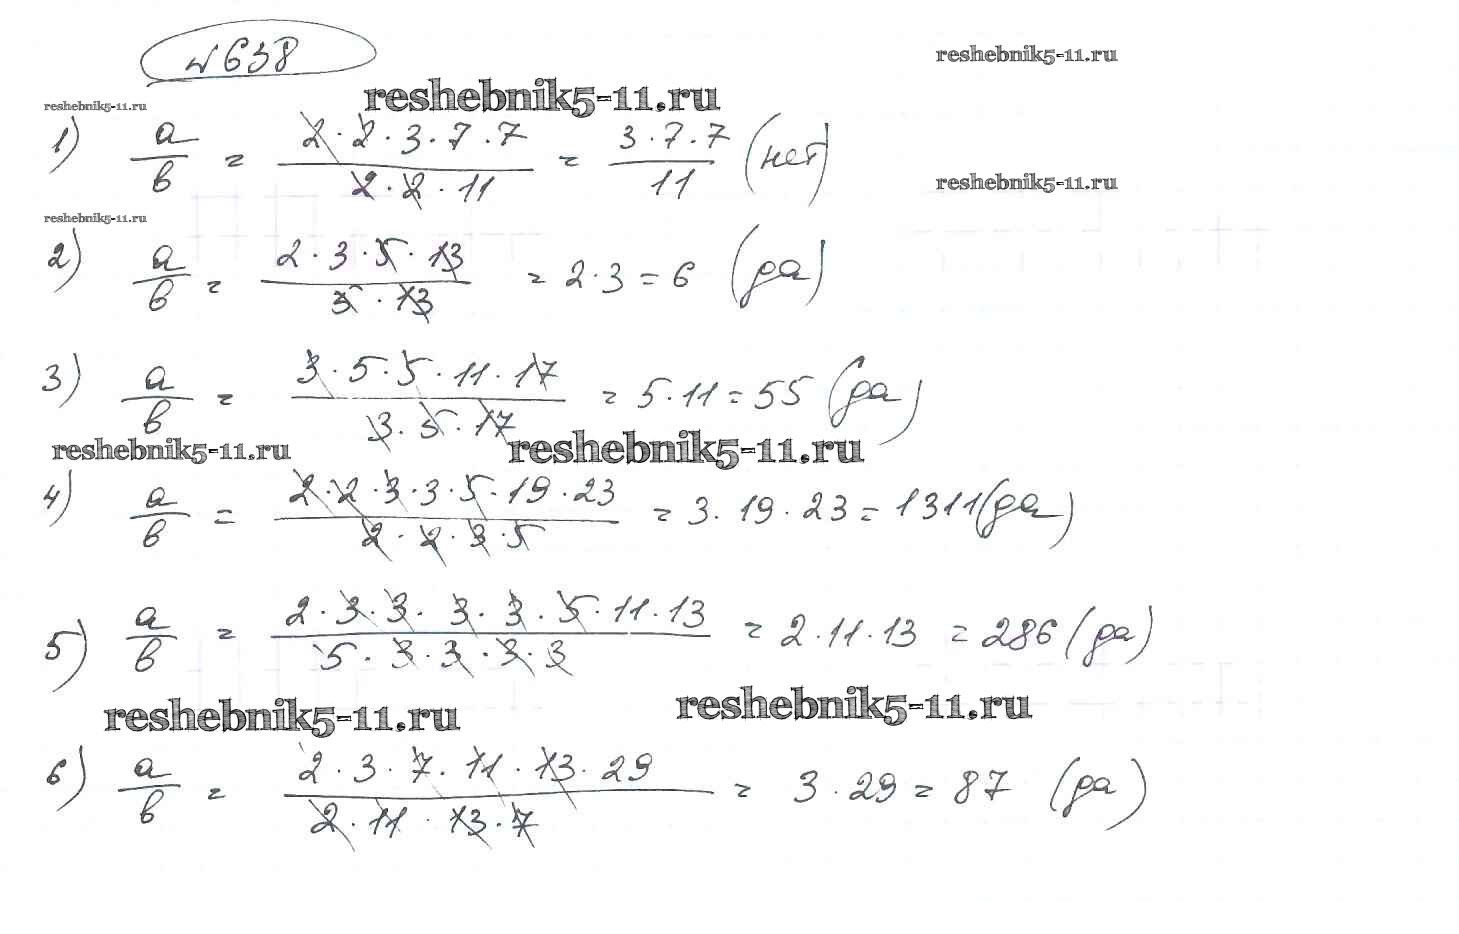 №638
reshebnik5-11.ru
reshebnik5-11.ru
reshebnik5-11.ru
1) a/b = 2·2·3·7·7 / 2·2·11 = 3·7·7 / 11 (нет)
reshebnik5-11.ru
reshebnik5-11.ru
2) a/b = 2·3·5·13 / 5·13 = 2·3 = 6 (да)
3) a/b = 3·5·5·11·17 / 3·5·17 = 5·11 = 55 (да)
reshebnik5-11.ru
reshebnik5-11.ru
4) a/b = 2·2·3·3·5·19·23 / 2·2·3·5 = 3·19·23 = 1311 (да)
5) a/b = 2·3·3·3·3·5·11·13 / 5·3·3·3·3 = 2·11·13 = 286 (да)
reshebnik5-11.ru
reshebnik5-11.ru
6) a/b = 2·3·7·11·13·29 / 2·11·13·7 = 3·29 = 87 (да)